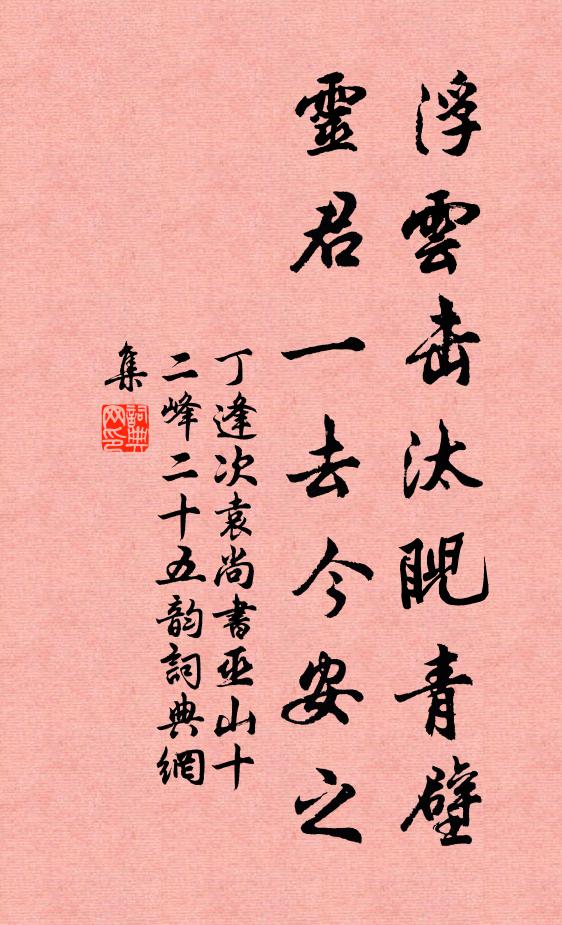 浮雲击汰睨青壁
靈君一去今安之
丁逢次袁尚書巫山十
二峰二十五韵詞典網
集
詞典
网印